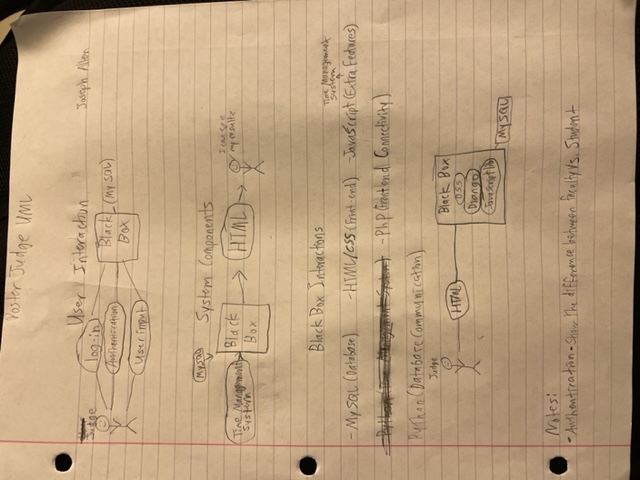 Poster Judge UML
User Interaction
Joseph Allen
Judge
log-in
Authentication
User input
Black Box
(MySQL)
System Components
MySQL
Time Management System
Black Box
HTML
I can see my results
Black Box Interactions
- MySQL (Database) - HTML/CSS (Front-end) - JavaScript (Extra Features)
Time Management System
Python (Time Management System) - PhP (Frontend Connectivity)
Python (Database Communication)
Judge
HTML
Black Box
CSS
Django
JavaScript lib
MySQL
Notes:
- Authentication - Show the difference between faculty vs. Student